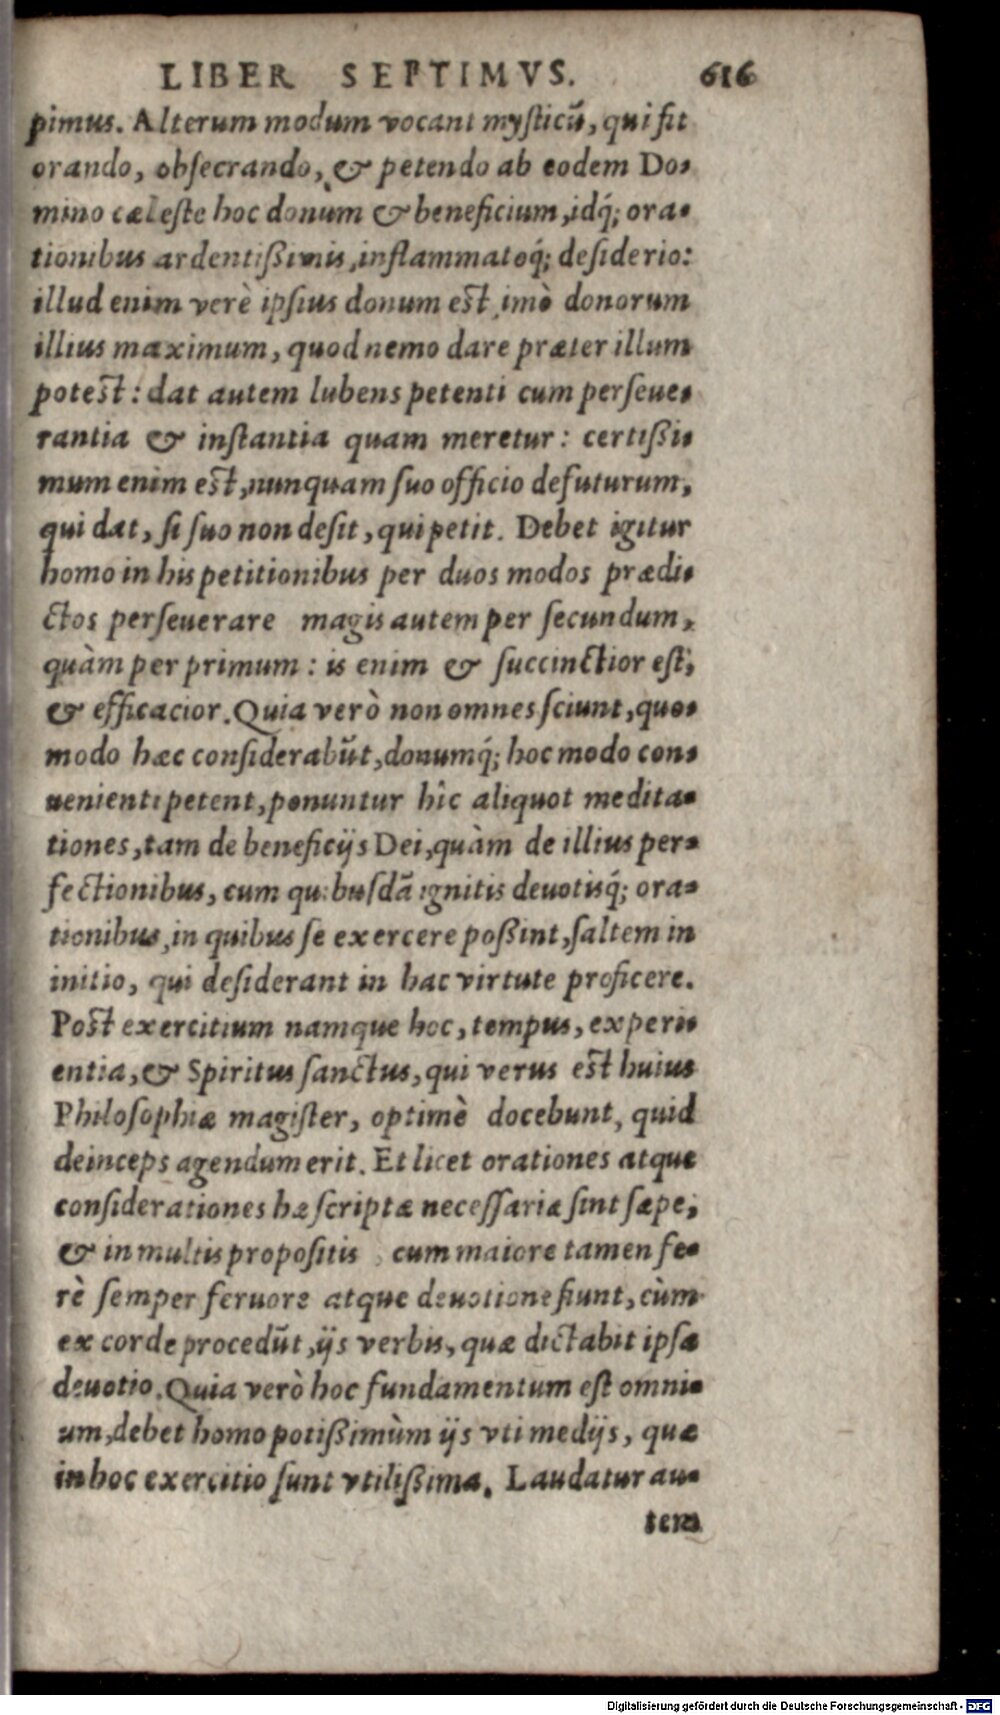 LIBER SEPTIMVS. 616
pimus. Alterum modum vocant mysticũ, qui fit
orando, obsecrando, & petendo ab eodem Do-
mino cæleste hoc donum & beneficium, idq́; ora-
tionibus ardentißimis, inflammatoq́; desiderio:
illud enim verè ipsius donum est, imò donorum
illius maximum, quod nemo dare præter illum
potest: dat autem lubens petenti cum perseue-
rantia & instantia quam meretur: certißi-
mum enim est, nunquam suo officio defuturum,
qui dat, si suo non desit, qui petit. Debet igitur
homo in his petitionibus per duos modos prædi-
ctos perseuerare magis autem per secundum,
quàm per primum: is enim & succinctior est,
& efficacior. Quia verò non omnes sciunt, quo-
modo hæc considerabũt, donumq́; hoc modo con-
uenienti petent, ponuntur hîc aliquot medita-
tiones, tam de beneficijs Dei, quàm de illius per-
fectionibus, cum quibusdã ignitis deuotisq́; ora-
tionibus, in quibus se exercere poßint, saltem in
initio, qui desiderant in hac virtute proficere.
Post exercitium namque hoc, tempus, experi-
entia, & Spiritus sanctus, qui verus est huius
Philosophiæ magister, optimè docebunt, quid
deinceps agendum erit. Et licet orationes atque
considerationes hæ scriptæ necessariæ sint sæpe,
& in multis propositis, cum maiore tamen fe-
rè semper feruore atque deuotione fiunt, cùm
ex corde procedũt, ijs verbis, quæ dictabit ipsa
deuotio. Quia verò hoc fundamentum est omni-
um, debet homo potißimùm ijs vti medijs, quæ
in hoc exercitio sunt vtilißima. Laudatur au-
tem
Digitalisierung gefördert durch die Deutsche Forschungsgemeinschaft - DFG